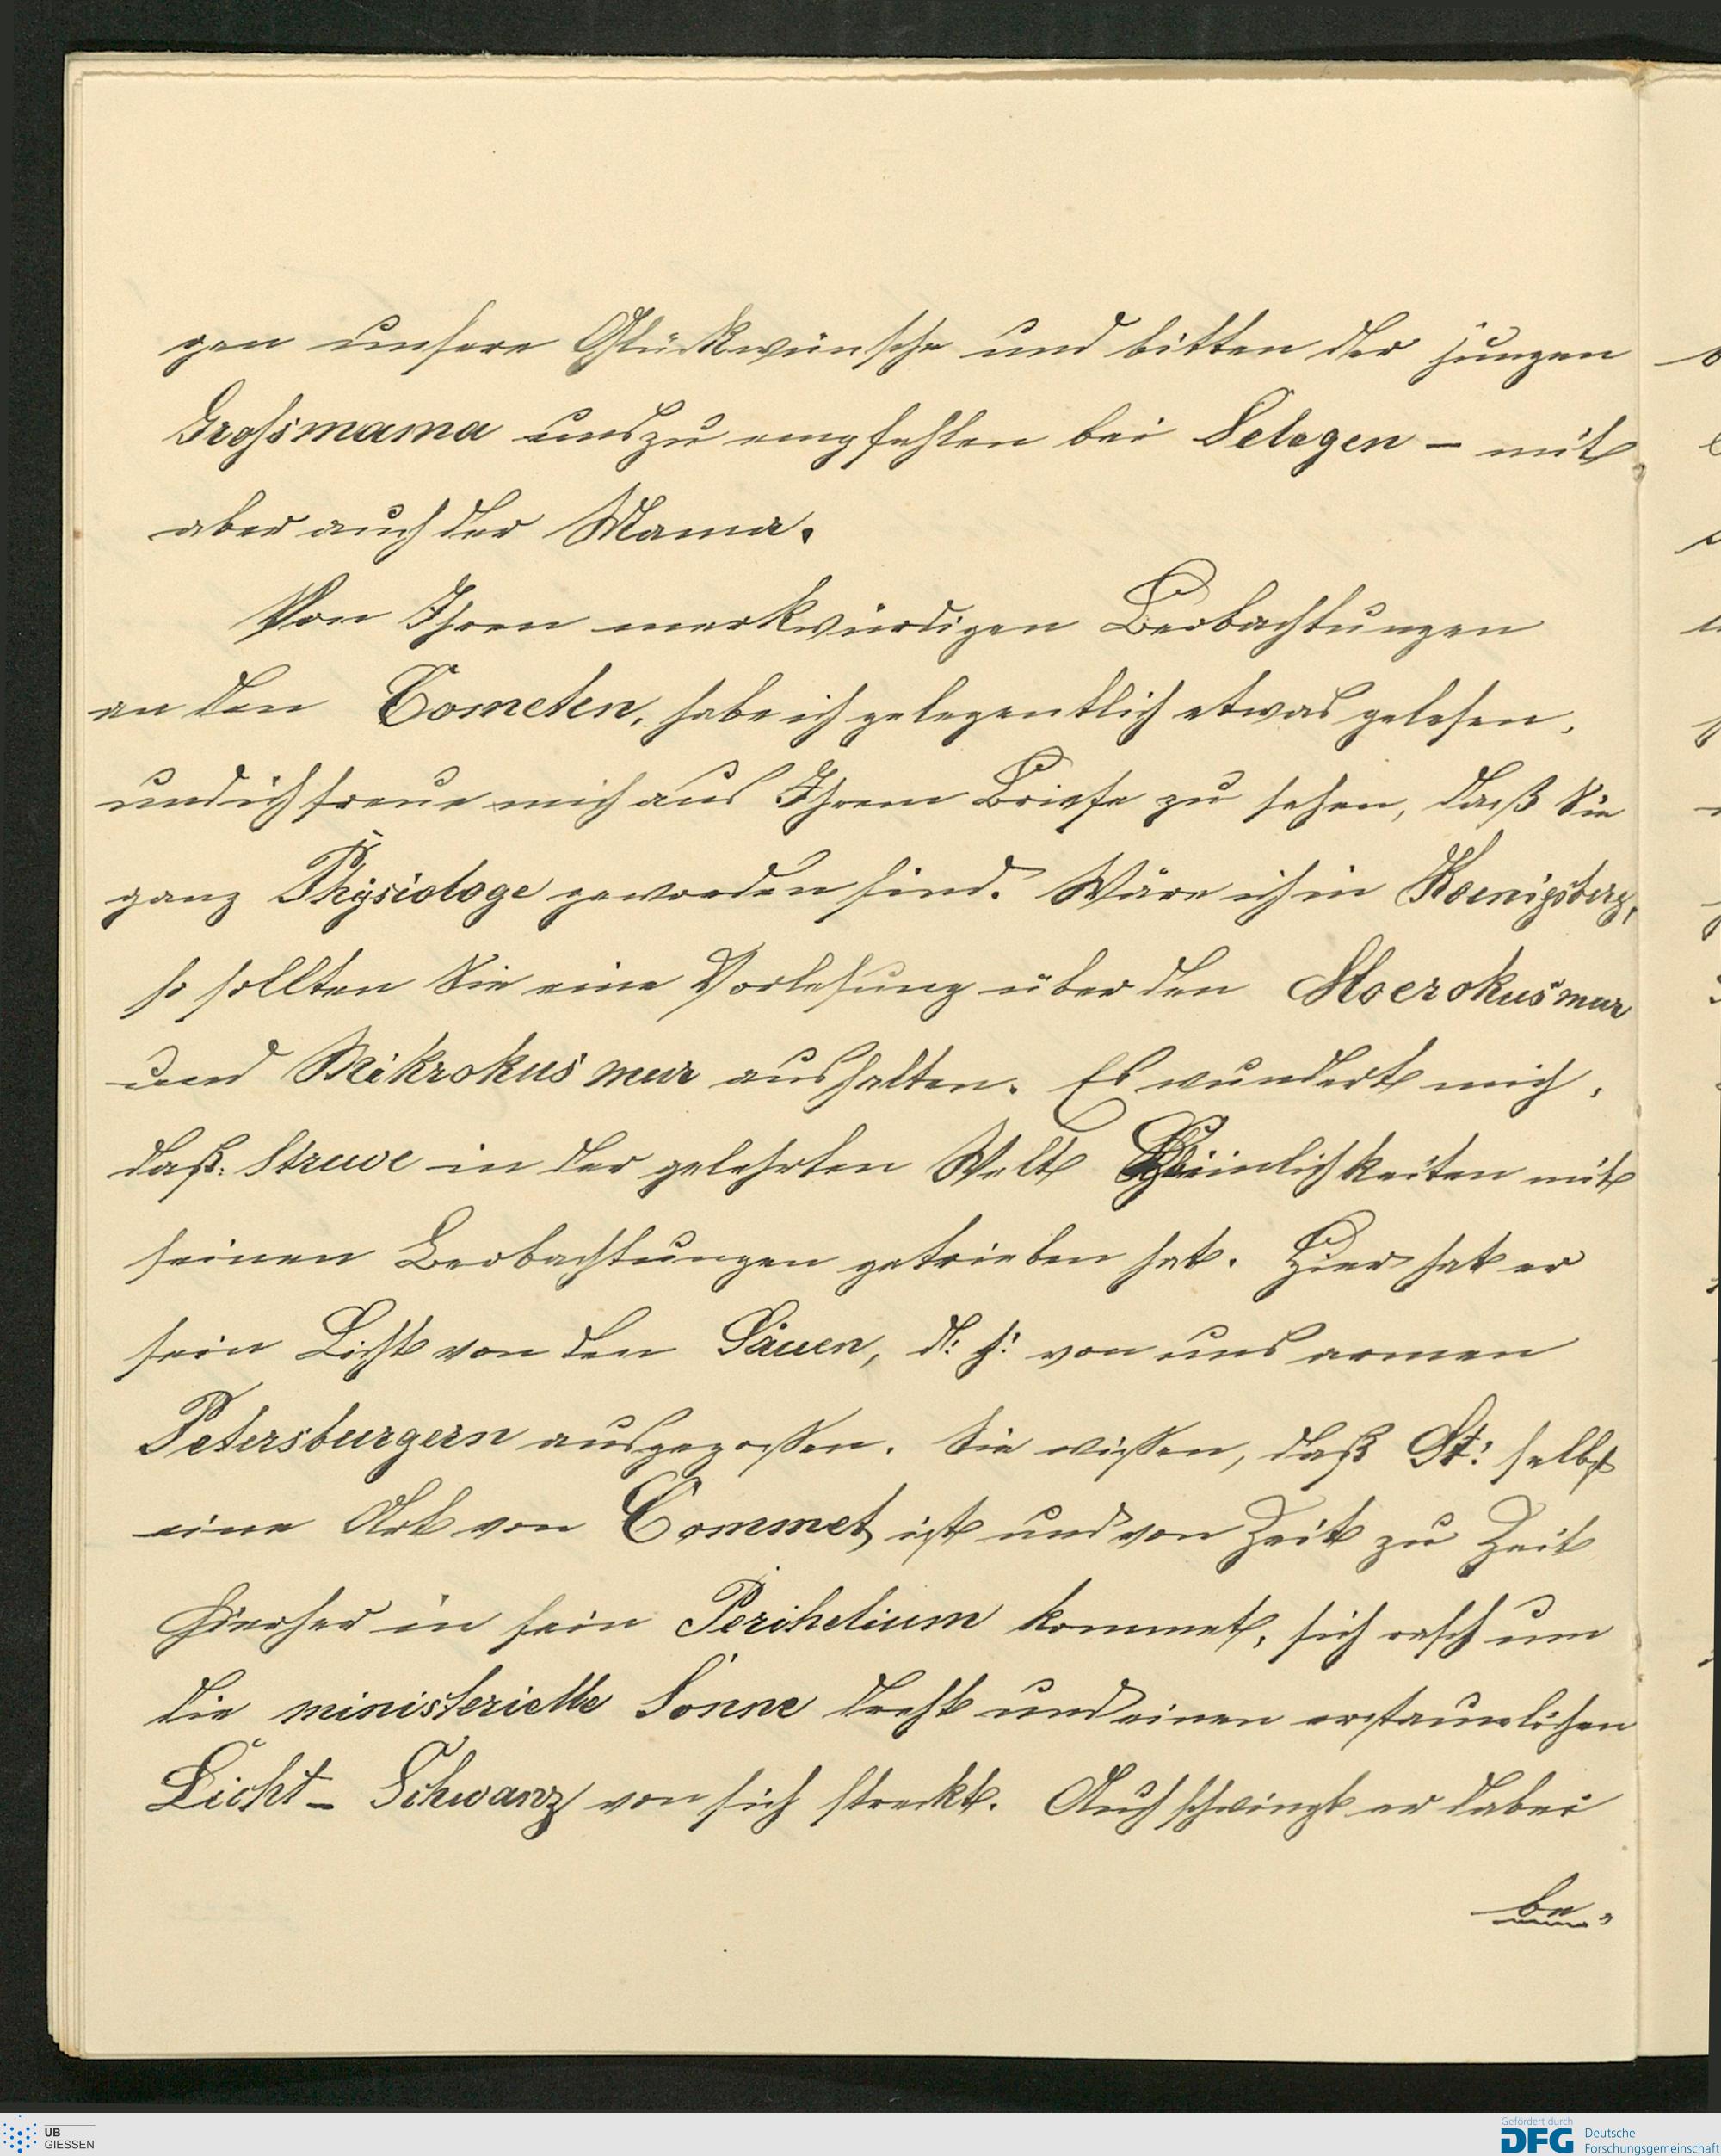 gen unsere Glückwünsche und bitten der jungen
Grosmama uns zu empfehlen bei Selegen – mit
aber auch der Mama.
Von Ihren merkwürdigen Beobachtungen
an den Cometen, habe ich gelegentlich etwas gelesen,
und ich freue mich aus Ihrem Briefe zu sehen, daß Sie
ganz Physiologe geworden sind. Wäre ich in Koenigsberg,
so sollten Sie eine Vorlesung über den
und Mikrokusmur aushalten. Es wundert mich,
daß Struve in der gelehrten Welt Heimlichkeiten mit
seinen Beobachtungen getrieben hat. Hier hat er
sein Licht von den Säuen, d: h: von uns armen
Petersburgern ausgegossen. Sie wissen, daß St: selbst
eine Art von Commet ist und von Zeit zu Zeit
hierher in sein Perihelium kommet, sich rasch um
die ministerielle Sonne dreht und einen erstaunlichen
Licht-Schwanz von sich streckt. Auch schwingt er dabei
be-
UB
GIESSEN
Gefördert durch
DFG Deutsche
Forschungsgemeinschaft